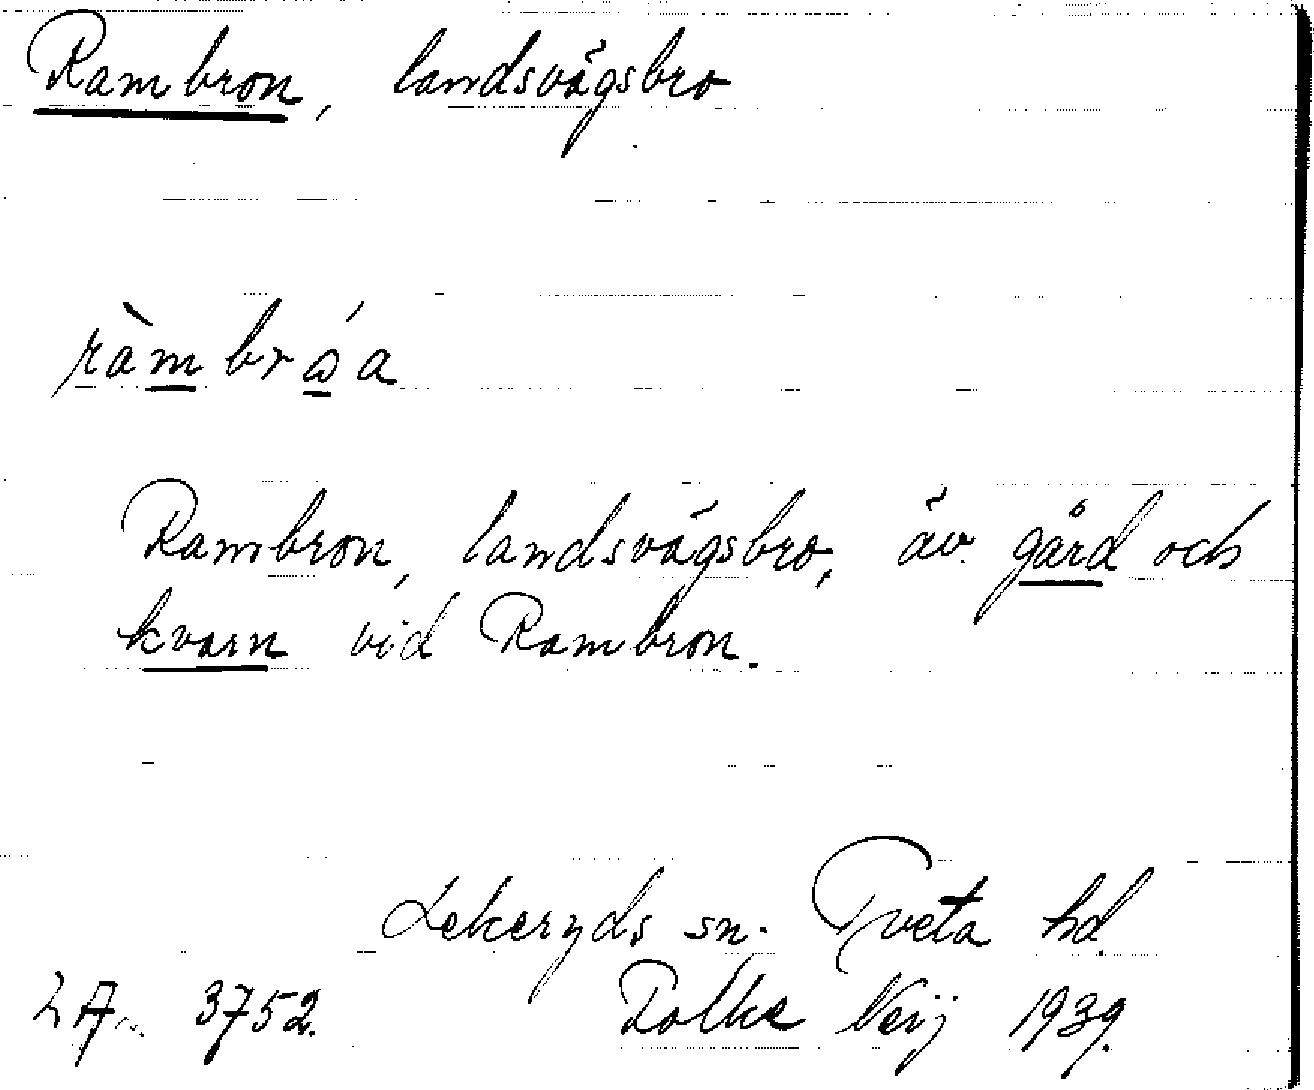 Rambron, landsvägsbro
ràmbróa
Rambron, landsvägsbro, äv. gård och
kvarn vid Rambron.
Lekeryds sn. Tveta hd.
3752. Neij 1939.